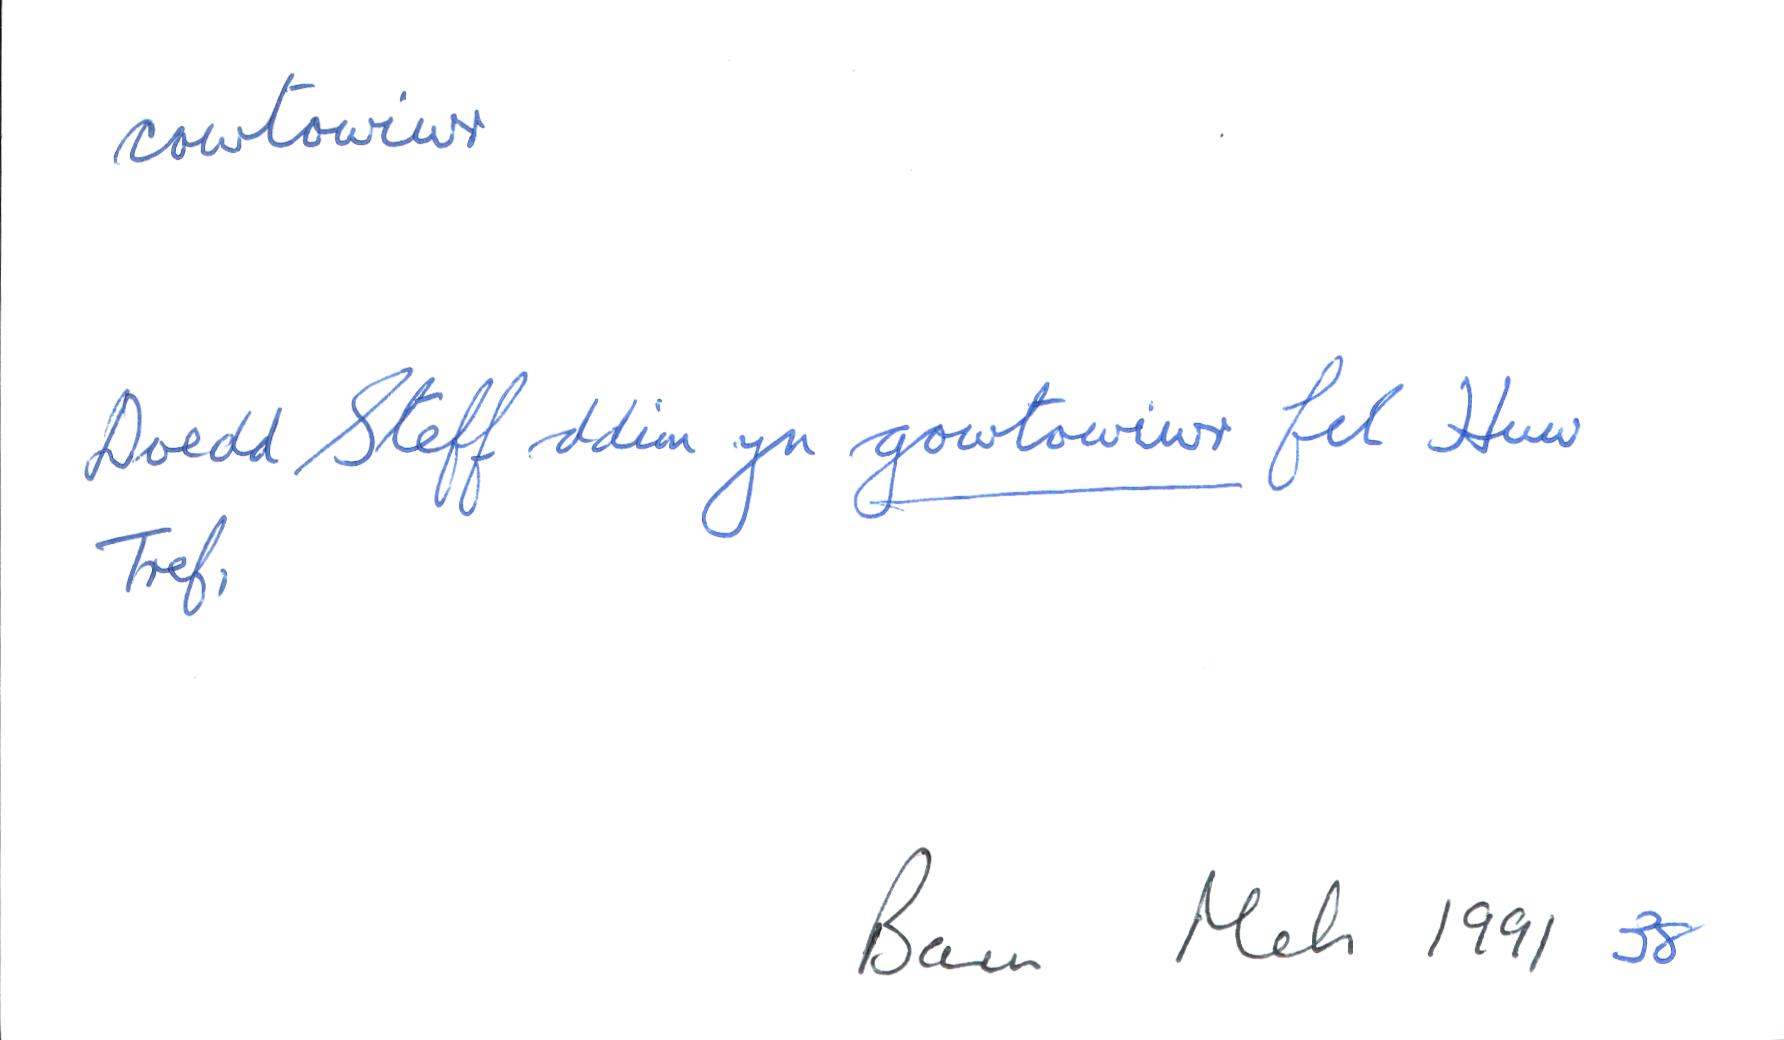 cowtowiwr
Doedd Steff ddim yn gowtowiwr fel Huw
Tref,
Barn Meh 1991 38